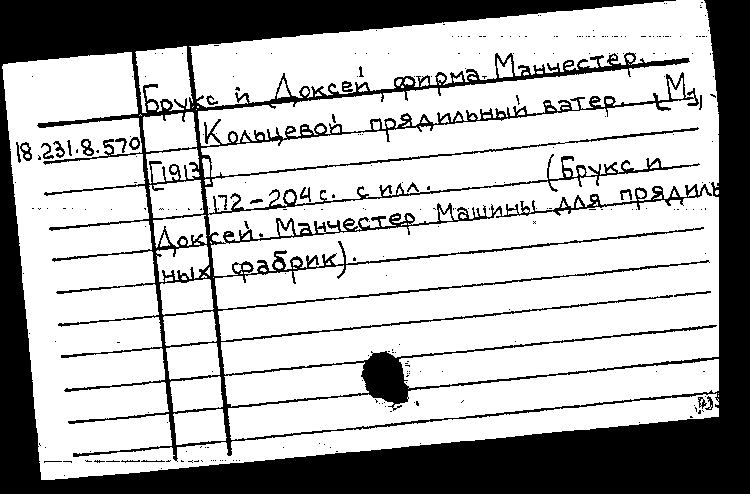 Брукс и Доксей, фирма. Манчестер.
18.231.8.570 Кольцевой прядильный ватер. [М],
[1913].
172-204 с. с илл. (Брукс и
Доксей. Манчестер. Машины для прядиль
ных фабрик).